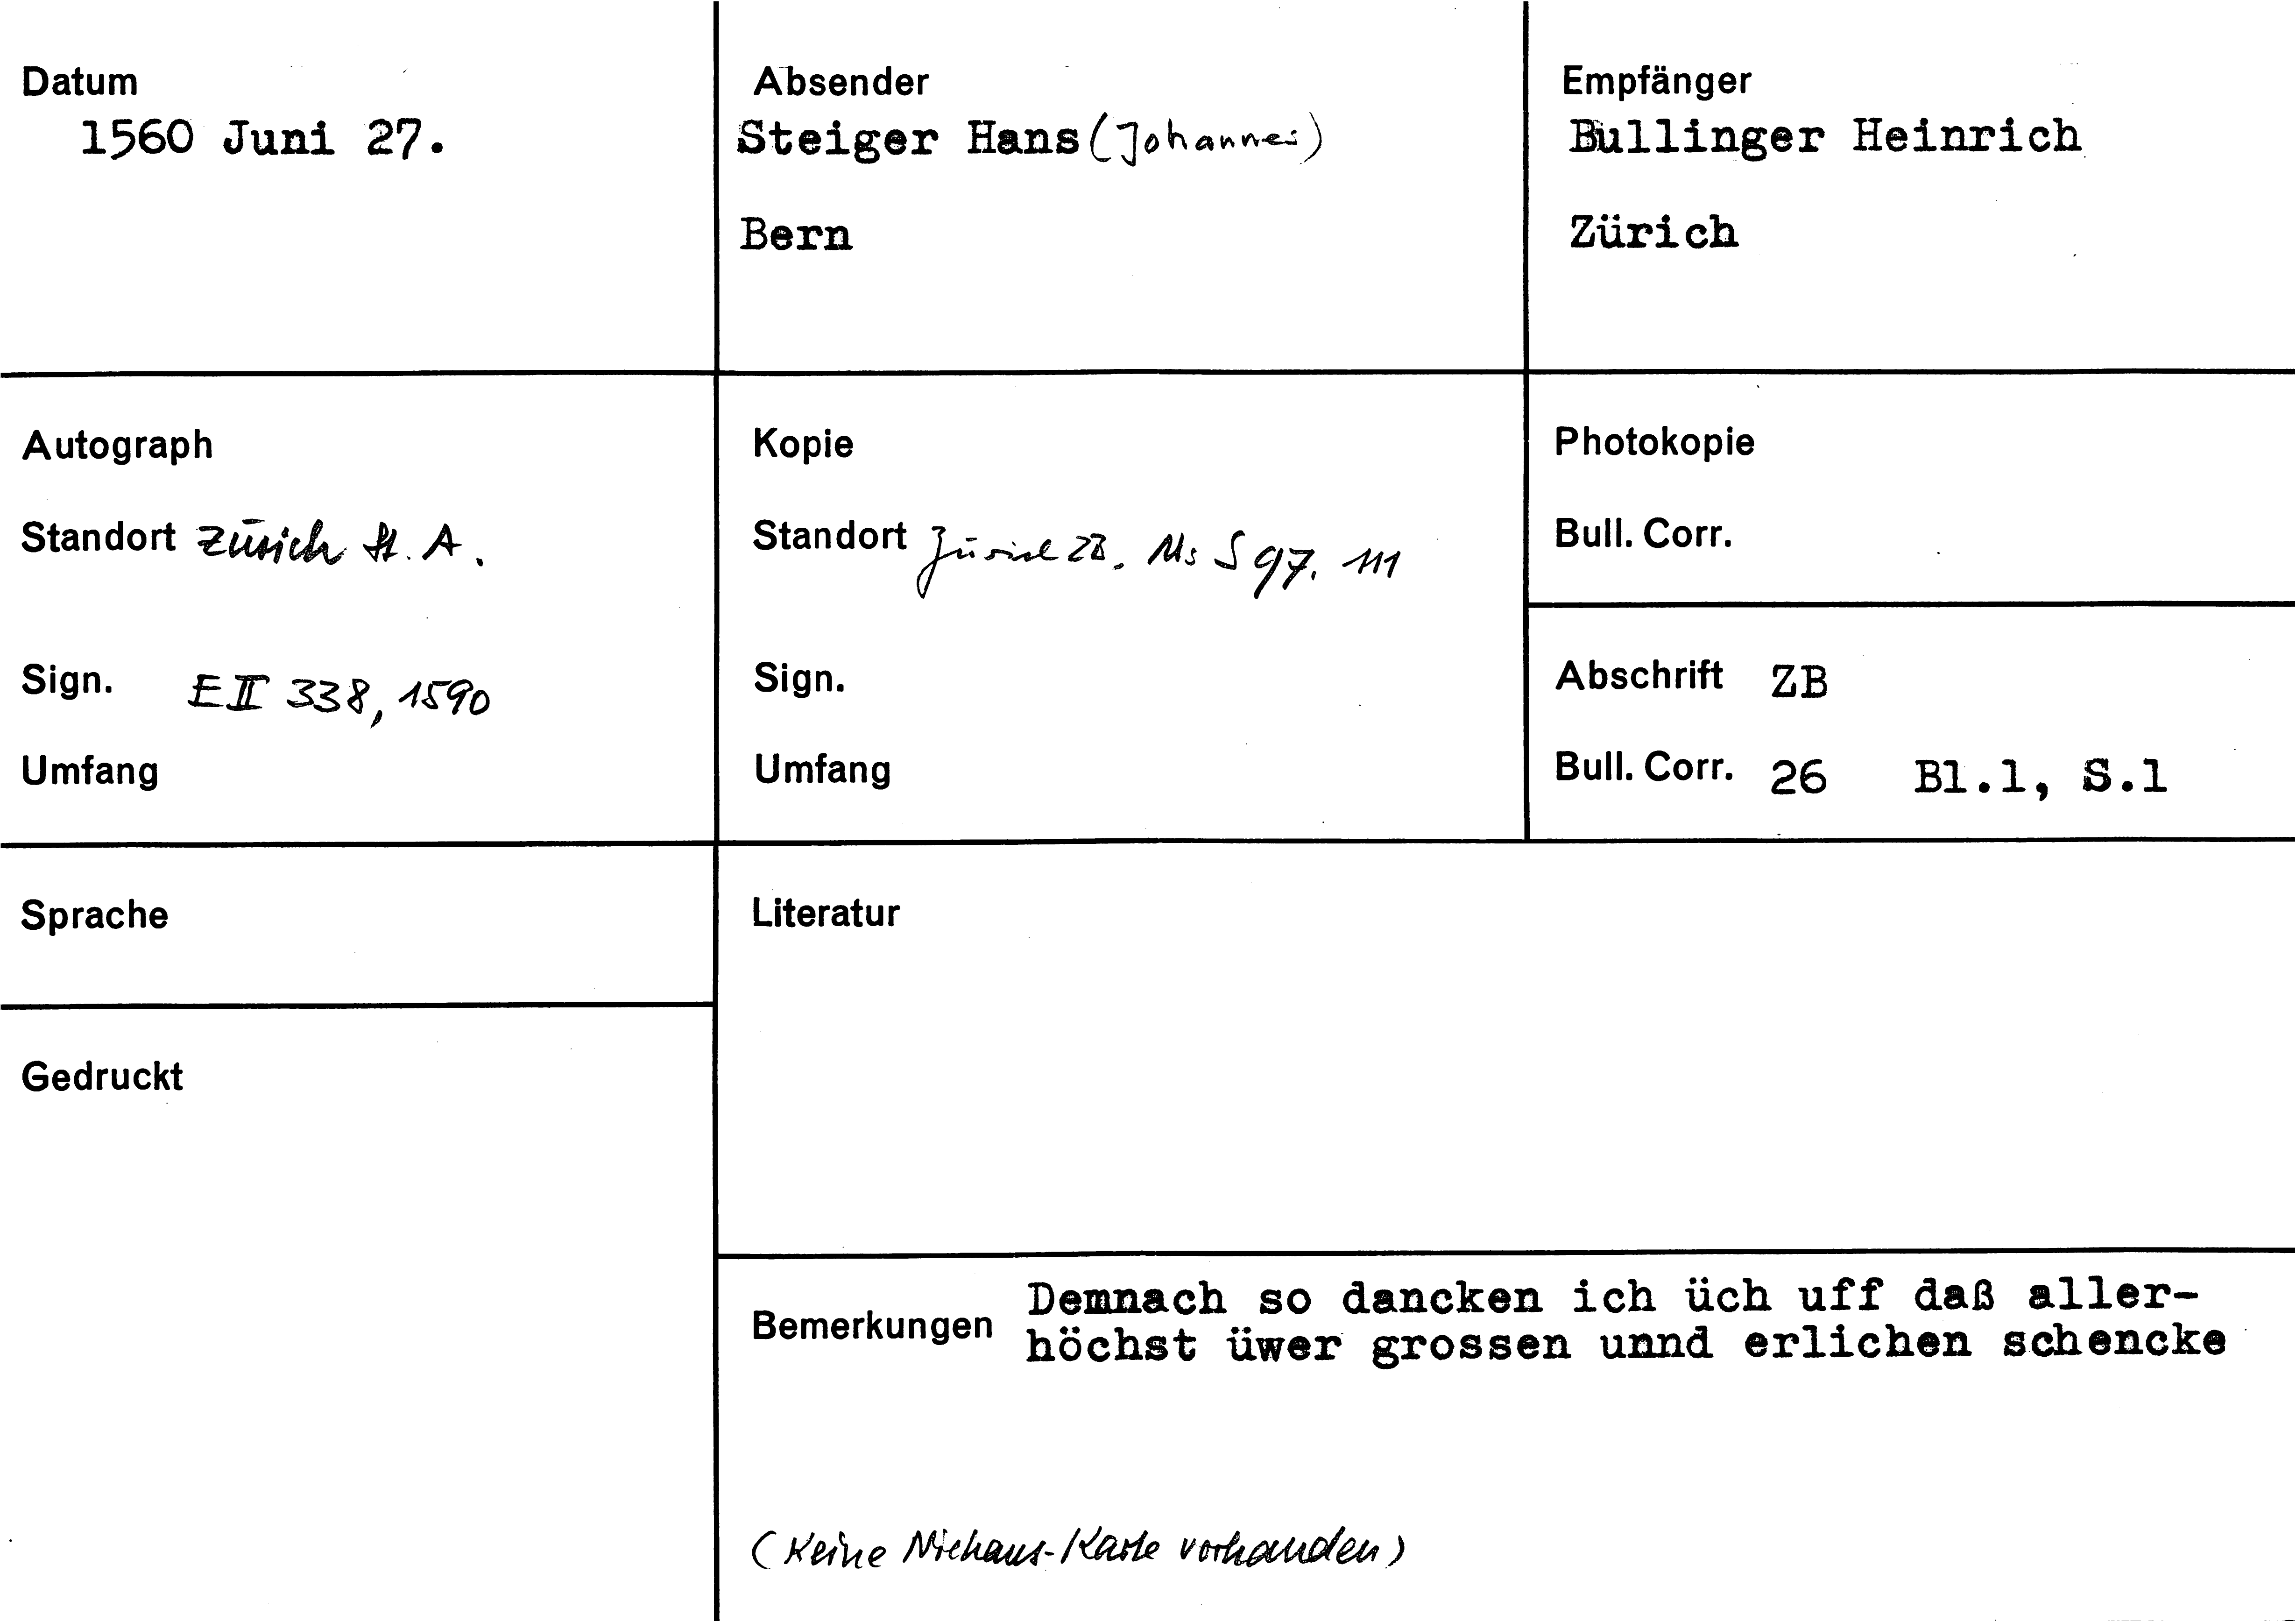 Datum
1560 Juni 27.
Absender
Steiger Hans (Johannes)
Bern
Empfänger
Bullinger Heinrich
Zürich
Autograph
Standort Zürich St. A.
Sign. E II 338, 1590
Umfang
Kopie
Standort Zürich ZB. Ms S 97. 111
Sign.
Umfang
Photokopie
Bull. Corr.
Abschrift ZB
Bull. Corr. 26 Bl.1, S.1
Sprache
Gedruckt
Literatur
Bemerkungen
Demnach so dancken ich üch uff daß aller-
höchst üwer grossen unnd erlichen schencke
(Keine Niehaus-Karte vorhanden)